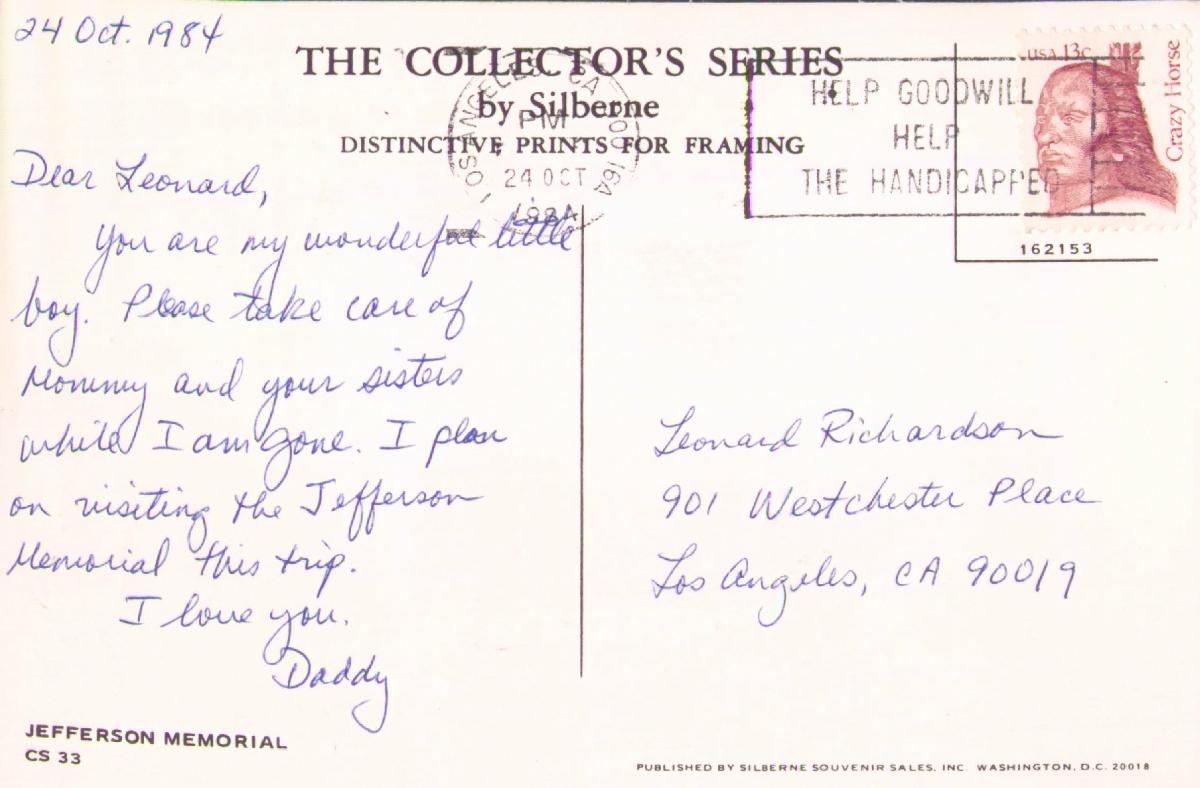 24 Oct. 1984
THE COLLECTOR'S SERIES
by Silberne
DISTINCTIVE PRINTS FOR FRAMING
LOS ANGELES, CA 900 16A
PM
24 OCT
1984
HELP GOODWILL
HELP
THE HANDICAPPED
USA 13c
Crazy Horse
162153
Dear Leonard,
You are my wonderful little
boy. Please take care of
Mommy and your sisters
while I am gone. I plan
on visiting the Jefferson
Memorial this trip.
I love you.
Daddy
Leonard Richardson
901 Westchester Place
Los Angeles, CA 90019
JEFFERSON MEMORIAL
CS 33
PUBLISHED BY SILBERNE SOUVENIR SALES, INC. WASHINGTON, D.C. 20018